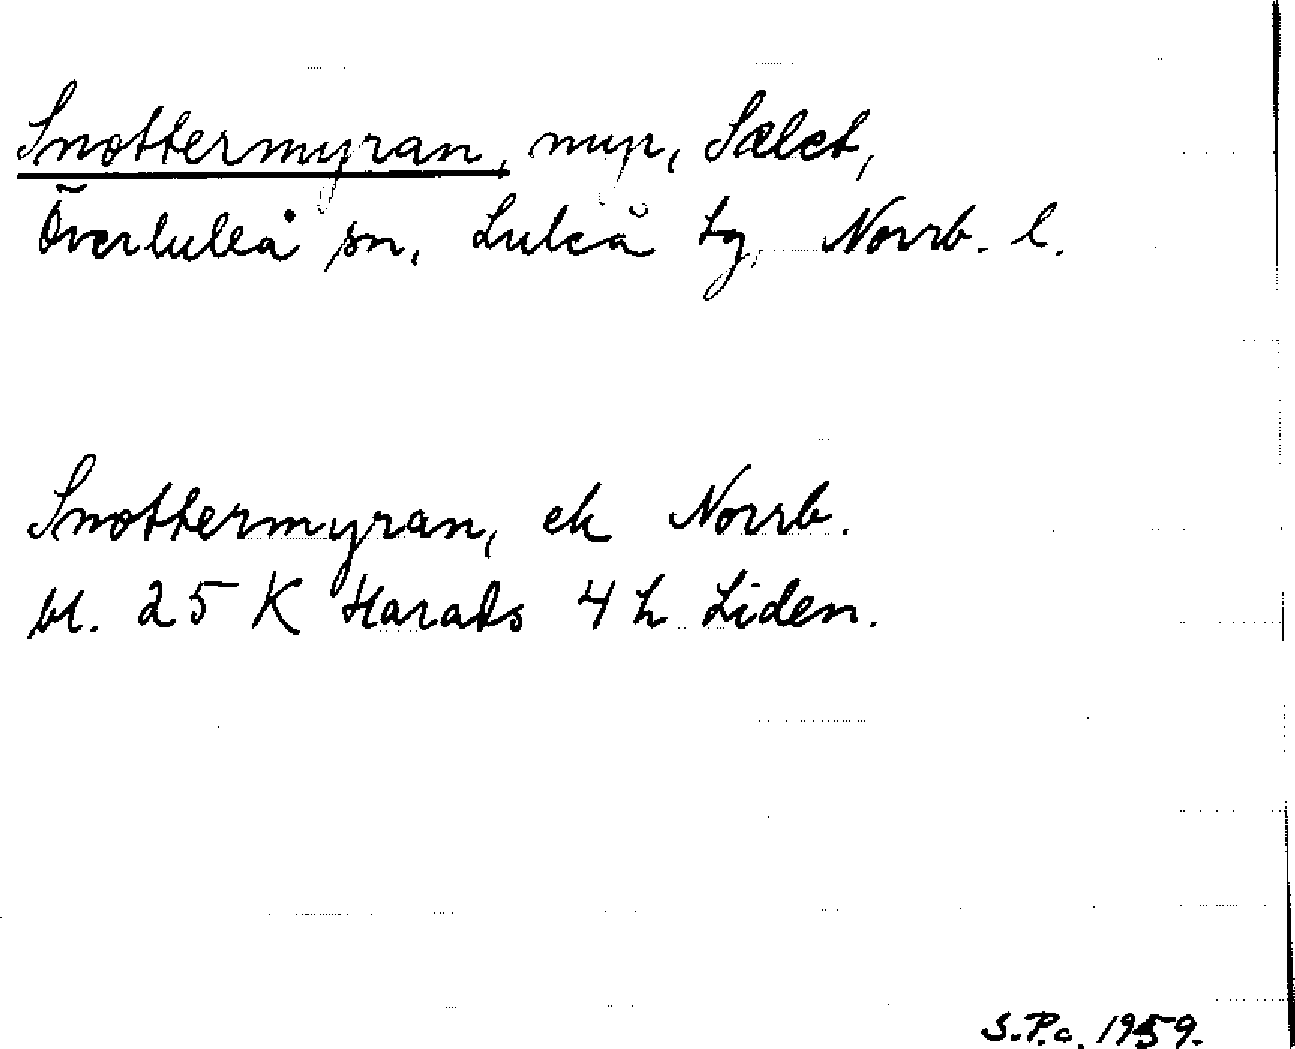 Snottermyran, myr, Sælet,
Överluleå sn, Luleå tg, Norrb. l.
Snottermyran, ek Norrb.
bl. 25 K Harads 4 h Liden.
S.P.c. 1959.